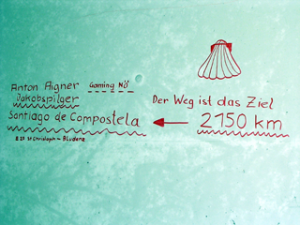 Anton Aigner Gaming NÖ
Jakobspilger
Santiago de Compostela
Der Weg ist das Ziel
← 2150 km